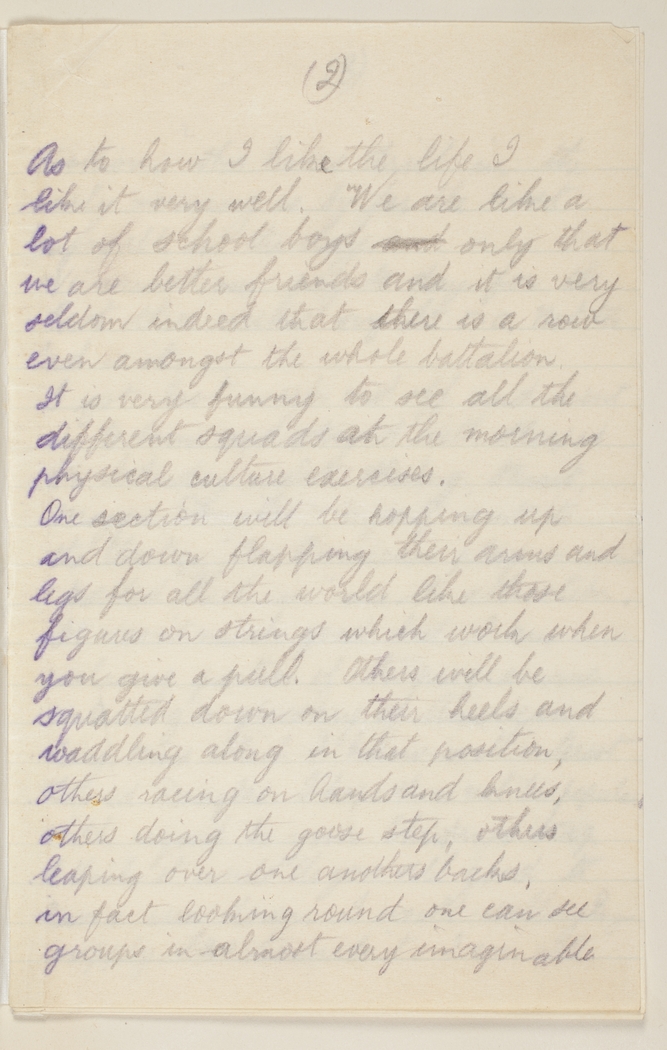 (2)
As to how I like the life I
like it very well. "We are like a
lot of school boys and only that
we are better friends and it is very
seldom indeed that there is a row
even amongst the whole battalion.
It is very funny to see all the
different squads at the morning
physical culture exercises.
One section will be hopping up
and down flapping their arms and
legs for all the world like those
figures on strings which work when
you give a pull. Others will be
squatted down on their heels and
waddling along in that position,
others racing on hands and knees,
others doing the goose step, others
leaping over one anothers backs,
in fact looking round one can see
groups in almost every imaginable